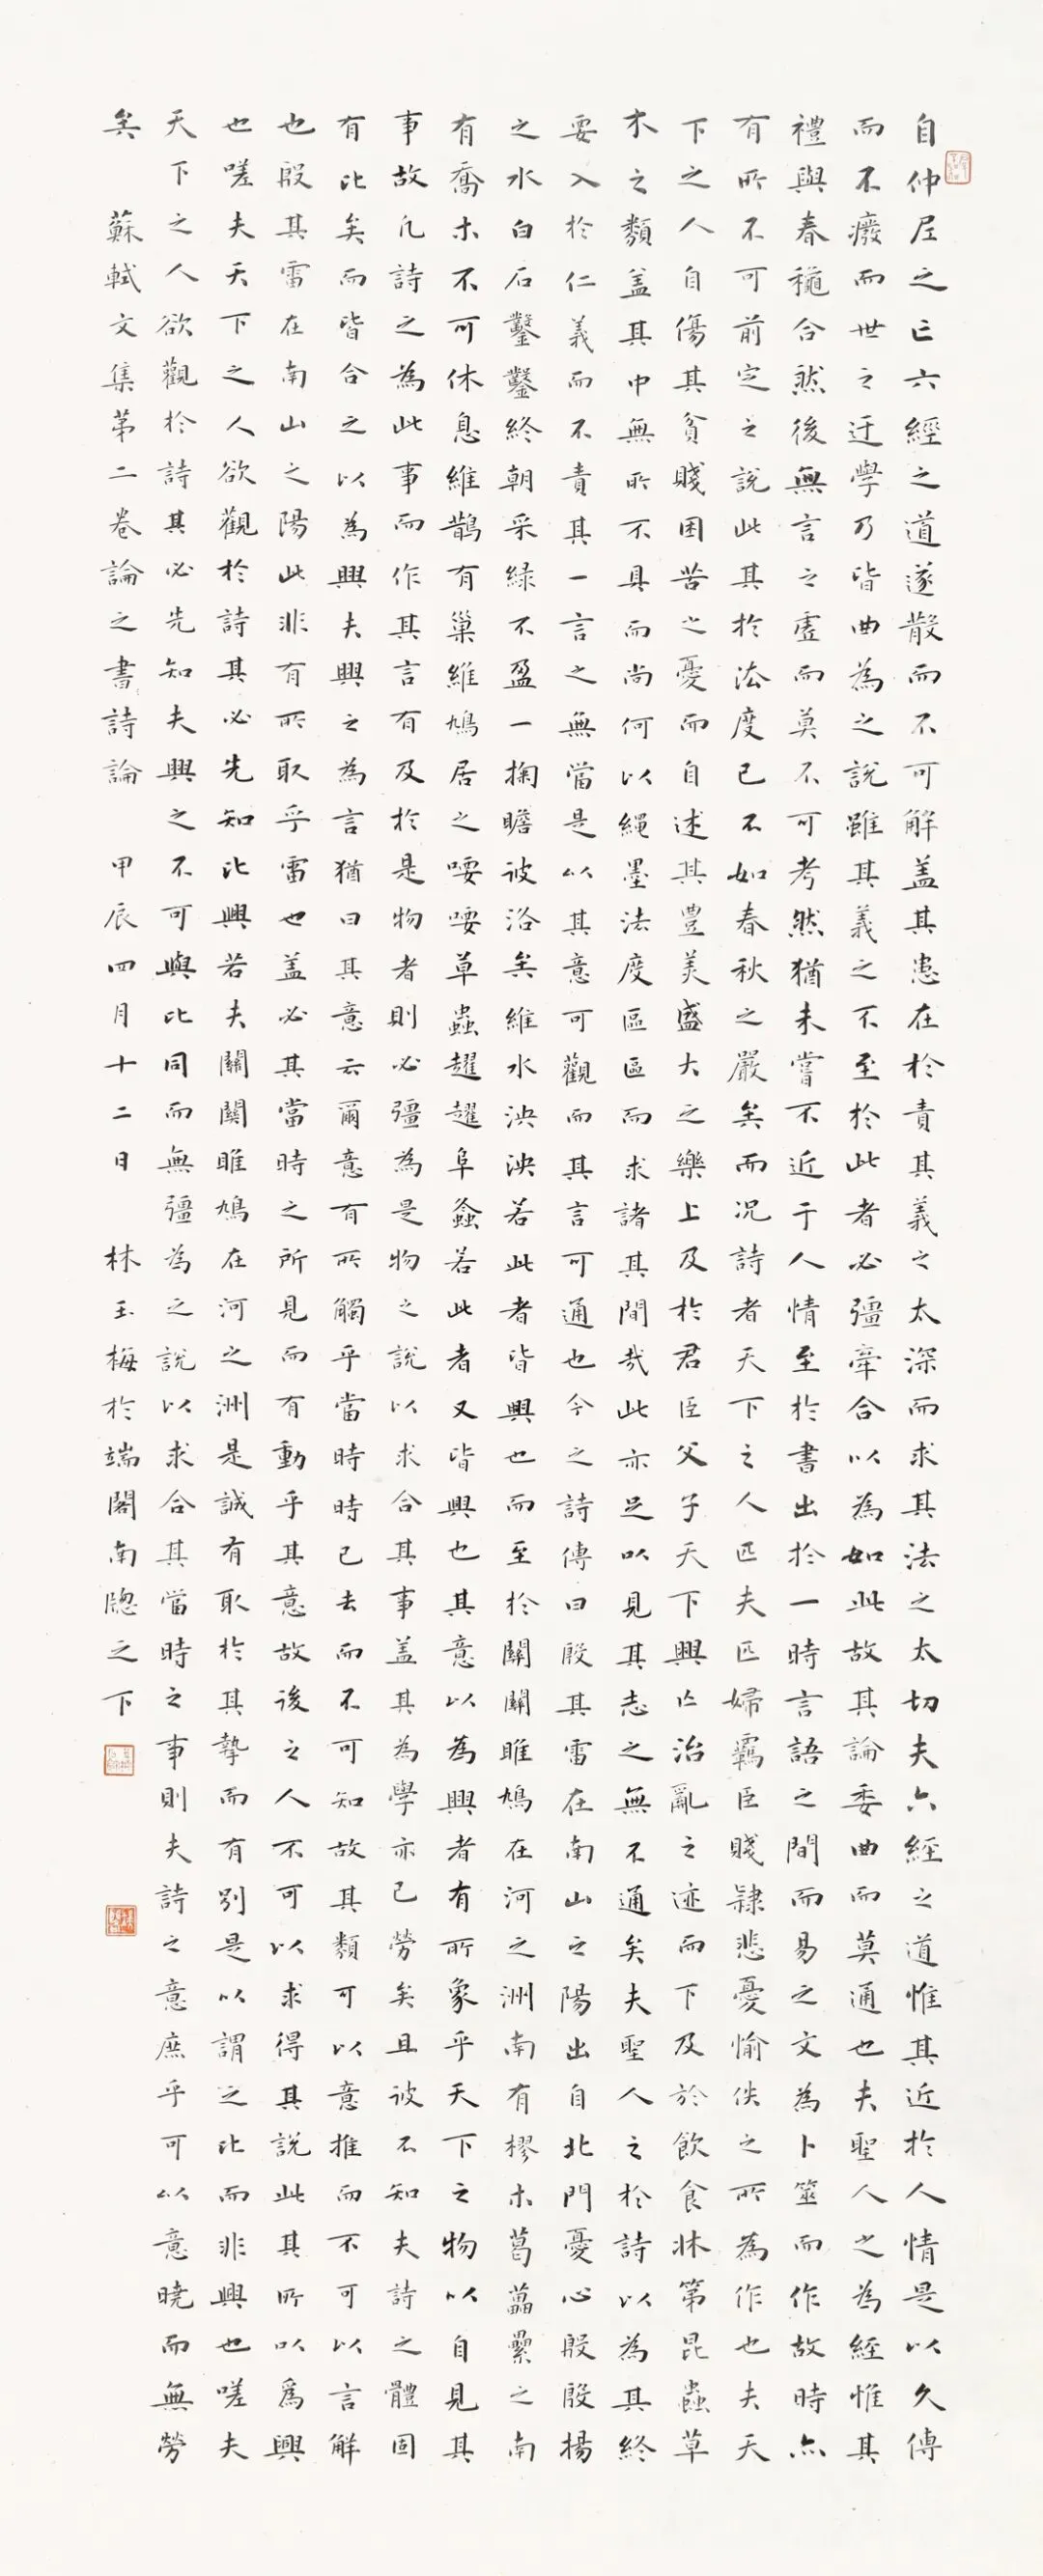 自仲尼之亡六經之道遂散而不可解盖其患在於責其義之太深而求其法之太切夫六經之道惟其近於人情是以久傳
而不癈而世之迂學乃皆曲為之說雖其義之不至於此者必彊牽合以為如此故其論委曲而莫通也夫聖人之為經惟其
禮與春穐合然後無言之虛而莫不可考然猶未嘗不近于人情至於書出於一時言語之間而易之文為卜筮而作故時亦
有所不可前定之說此其於法度已不如春秋之嚴矣而况詩者天下之人匹夫匹婦羈臣賤隸悲憂愉佚之所為作也夫天
下之人自傷其貧賤困苦之憂而自述其豊美盛大之樂上及於君臣父子天下興亡治亂之迹而下及於飲食牀第昆蟲草
木之類盖其中無所不具而尚何以繩墨法度區區而求諸其間哉此亦足以見其志之無不通矣夫聖人之於詩以為其終
要入於仁義而不責其一言之無當是以其意可觀而其言可通也今之詩傳曰殷其雷在南山之陽出自北門憂心殷殷揚
之水白石鑿鑿終朝采緑不盈一掬瞻彼洛矣維水泱泱若此者皆興也而至於關關雎鳩在河之洲南有樛木葛藟纍之南
有喬木不可休息維鵲有巢維鳩居之喓喓草蟲趯趯阜螽若此者又皆興也其意以為興者有所象乎天下之物以自見其
事故凡詩之為此事而作其言有及於是物者則必彊為是物之說以求合其事盖其為學亦已勞矣且彼不知夫詩之體固
有比矣而皆合之以為興夫興之為言猶曰其意云爾意有所觸乎當時時已去而不可知故其類可以意推而不可以言解
也殷其雷在南山之陽此非有所取乎雷也盖必其當時之所見而有動乎其意故後之人不可以求得其説此其所以爲興
也嗟夫天下之人欲觀於詩其必先知比興若夫關關雎鳩在河之洲是誠有取於其摯而有别是以謂之比而非興也嗟夫
天下之人欲觀於詩其必先知夫興之不可與比同而無彊為之說以求合其當時之事則夫詩之意庶乎可以意曉而無勞
矣　蘇軾文集第二卷論之書詩論　甲辰四月十二日　林玉梅於端閣南牕之下